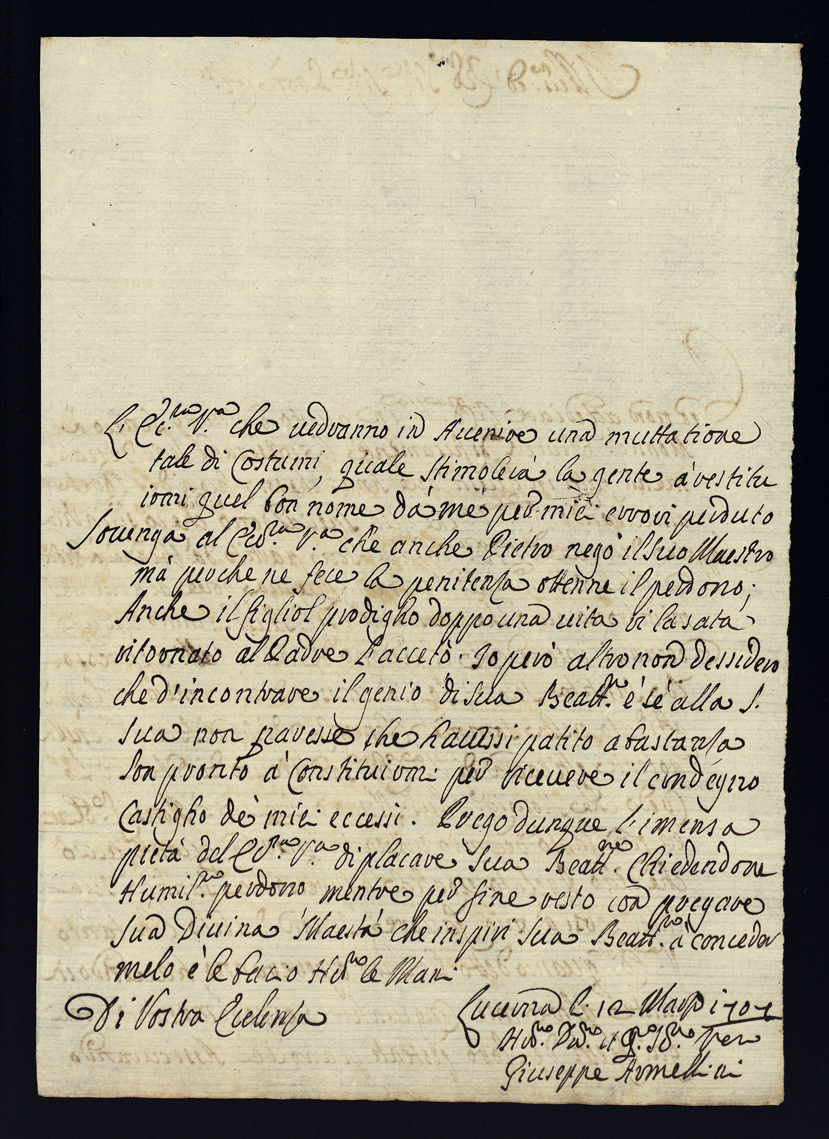 L'Ecc.za V.a che vedranno in Avenire una muttatione
tale di Costumi, quale stimolerà la gente à restitu
irmi quel bon nome dà mé per miei errori perduto
Sovenga al Ecc.za V.a che anche Pietro negò il suo Maestro
mà perche ne fece la penitenza ottenne il perdono;
Anche il figliol prodigho doppo una vita rilasata
ritornato al Padre l'accetò. Io però altro non dessidero
che d'incontrare il genio di Sua Beatt.ne è sé alla S.
Sua non paresse che havessi patito abastanza
son pronto à Constituirmi per ricevere il condegno
Castigho dé miei eccessi. Prego dunque l'imensa
pietà del Ecc.za V.a di placare Sua Beatt.ne Chiedendone
Humil.te perdono mentre per fine resto con pregare
Sua Divina Maestà che inspiri Sua Beatt.ne à conceder
melo è le bacio H.mo le Mani
Di Vostra Ecelenza
Lucerna li 12 Marzo 1707
Giuseppe Armellini